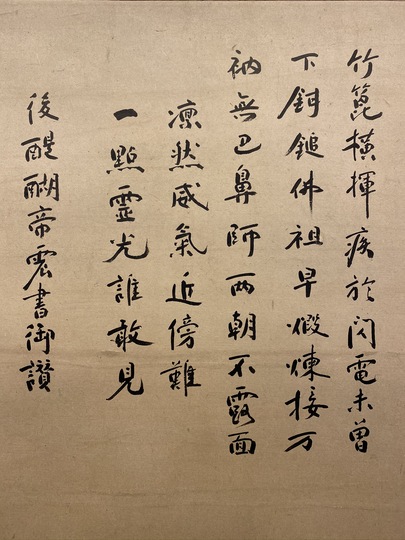 竹箆横揮疾於閃電未曽
下鉗鎚佛祖早煆煉接万
衲無巴鼻師両朝不露面
凛然威氣近傍難
一點霊光誰敢見
後醍醐帝震書御讃